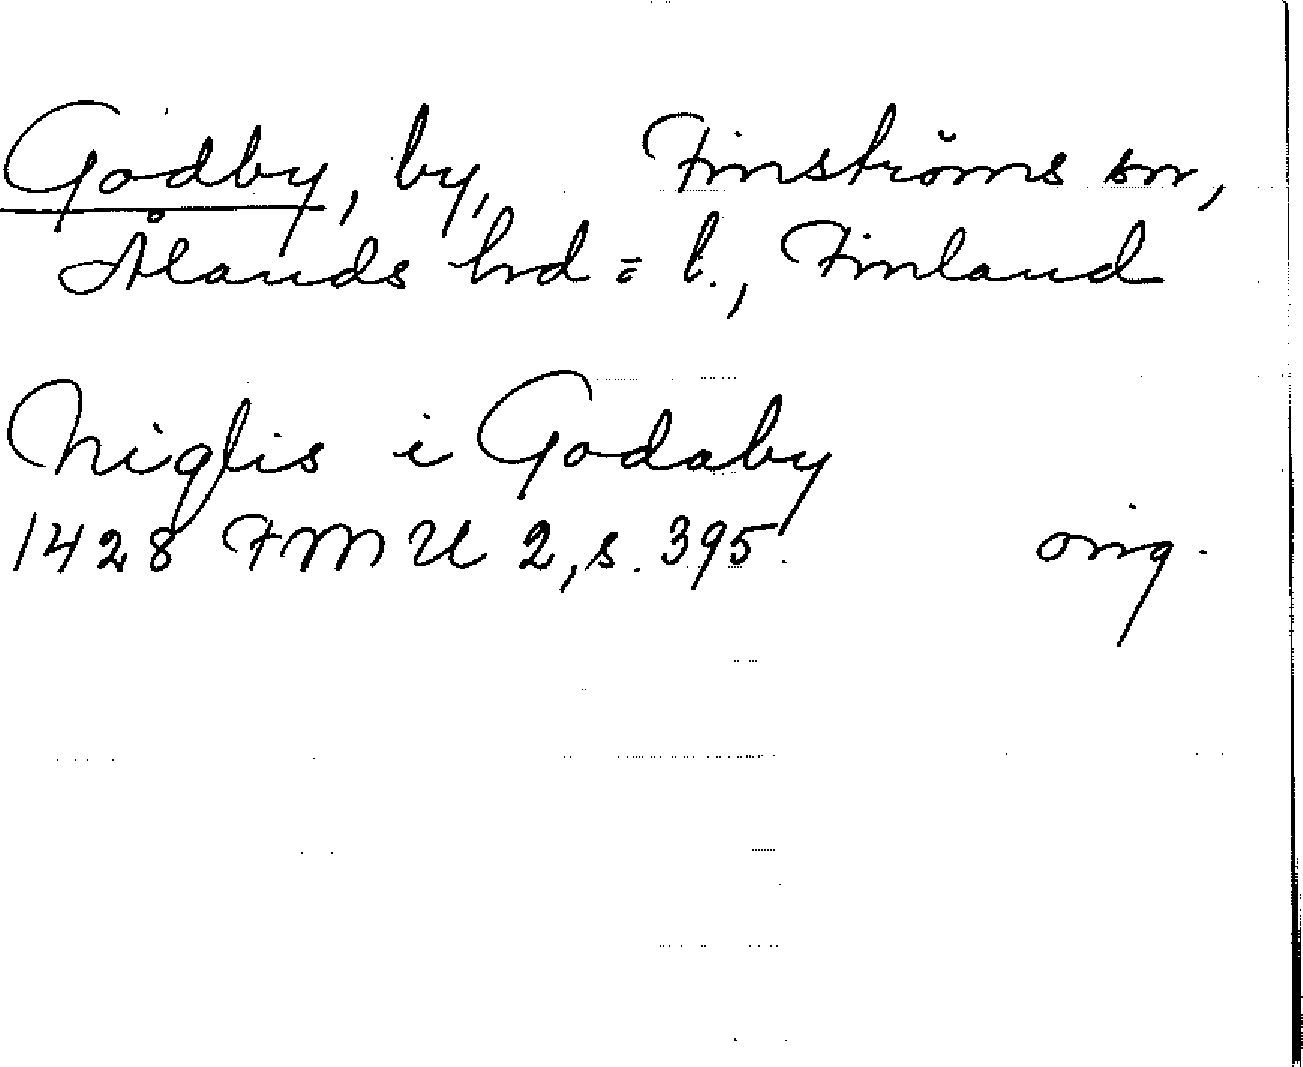 Godby, by, Finströms sn,
Ålands hd = l., Finland
Niglis i Godaby
1428 FMU 2, s. 395. orig.